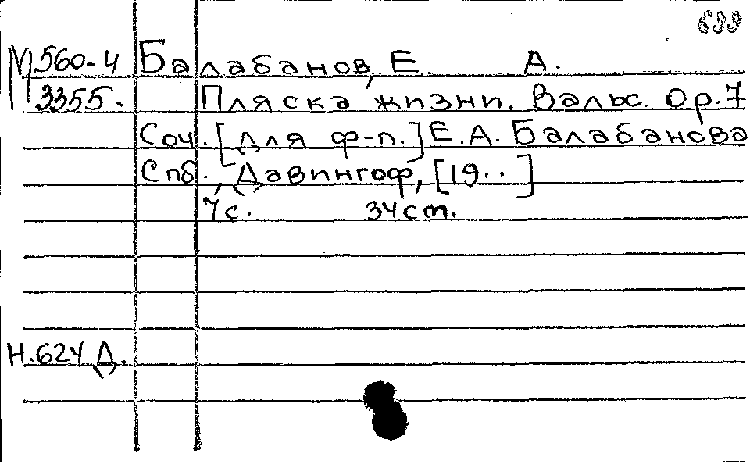 699
М 560-4 Балабанов, Е. А.
3355. Пляска жизни. Вальс. Op.7
Соч. [Для ф-п.] Е.А. Балабанова
Спб., Давингоф, [19..]
7с. 34см.
Н.624 Д.